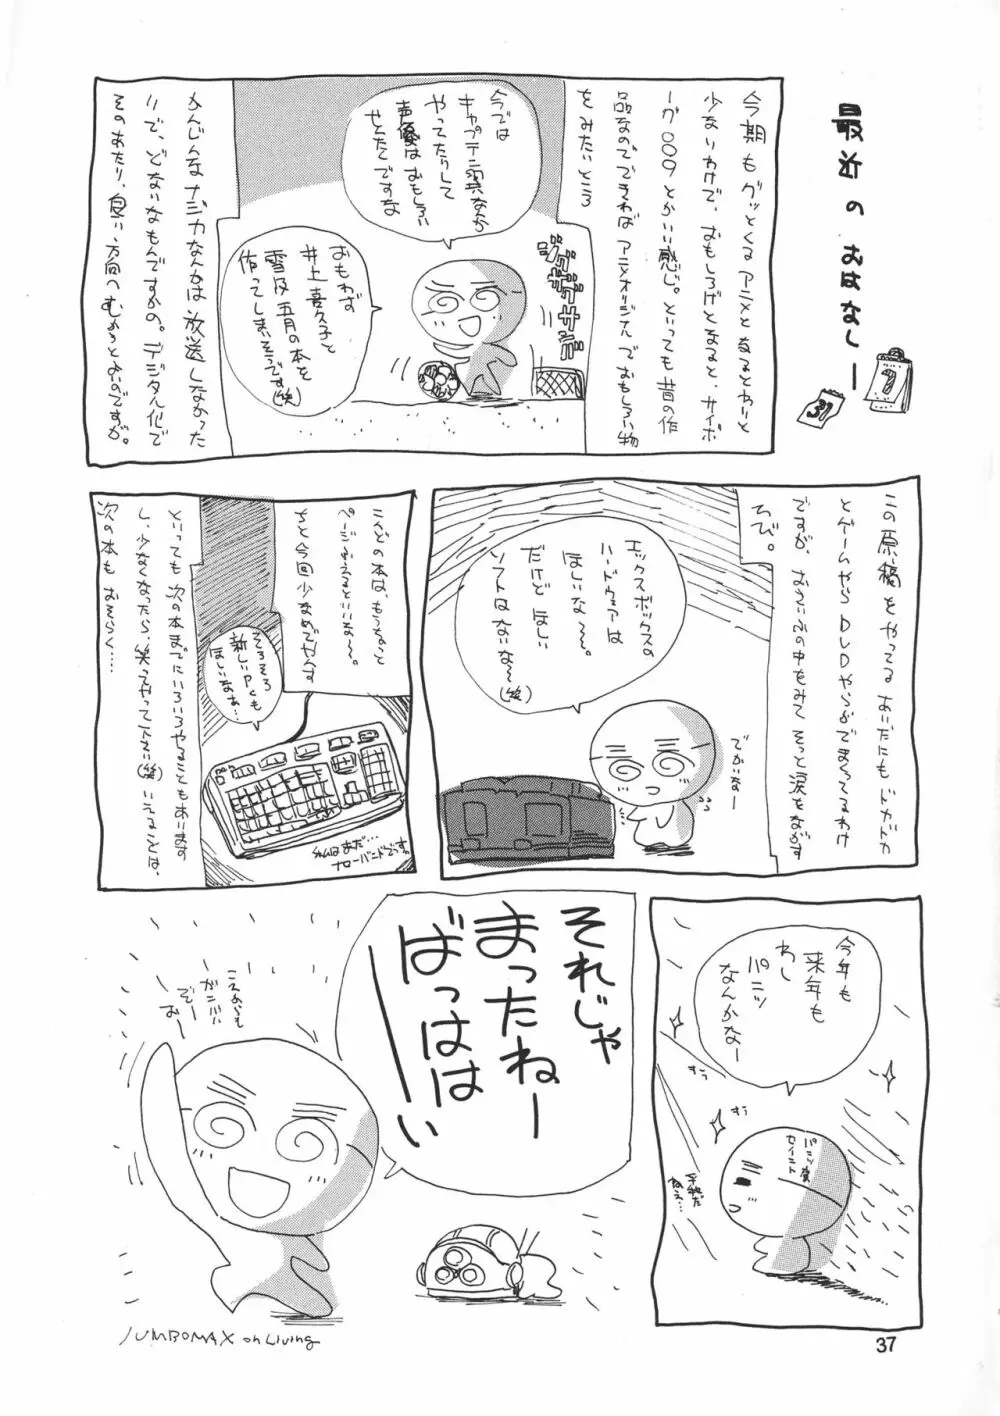 最近のおはなしー
7
31
今期もグッとくるアニメとなるとわりと
少ないわけで、おもしろげとなると、サイボ
ーグ009とかいい感じ。といっても昔の作
品なのでできればアニメオリジナルでおもしろい物
をみたいところ
今では
キャプテン翼なんか
やってたりして
声優はおもしろい
せんたくですな
ジタバタ
おもわず
井上喜久子と
雪乃五月の本を
作ってしまいそうです(笑)
かんじんなナジカなんかは放送しなかった
りで、どないなもんですかの。デジタル化で
そのあたり、良い方向へむかうとよいのですが。
この原稿をやってるあいだにもドカドカ
とゲームやらDVDやらがでまくってるわけ
ですが、おさいふの中をみてそっと涙をながす
ちび。
エックスボックスの
ハードウェアは
ほしいな〜〜。
だけどほしい
ソフトはないな〜(笑)
でかいなー
こんどの本は、もうちょっと
ページふえるといいな〜〜。
ちと今回少なめでやんす
そろそろ
新しいPCも
ほしいなぁ…
といっても次の本までにいろいろやることもあります
し、少なくなったら、笑ってやって下さい(笑)いえることは、
次の本もおそらく……
うちはまだ…
ナローバンドです。
今年も
来年も
わし
パニッ
なんかなー
すぅ
すぅ
パニッ賞
セイント
手紙だ
ねぇ…
それじゃ
まったねー
ばっははーい
これからも
ガンバル
ぞー
おー
JUMBOMAX on Living
37